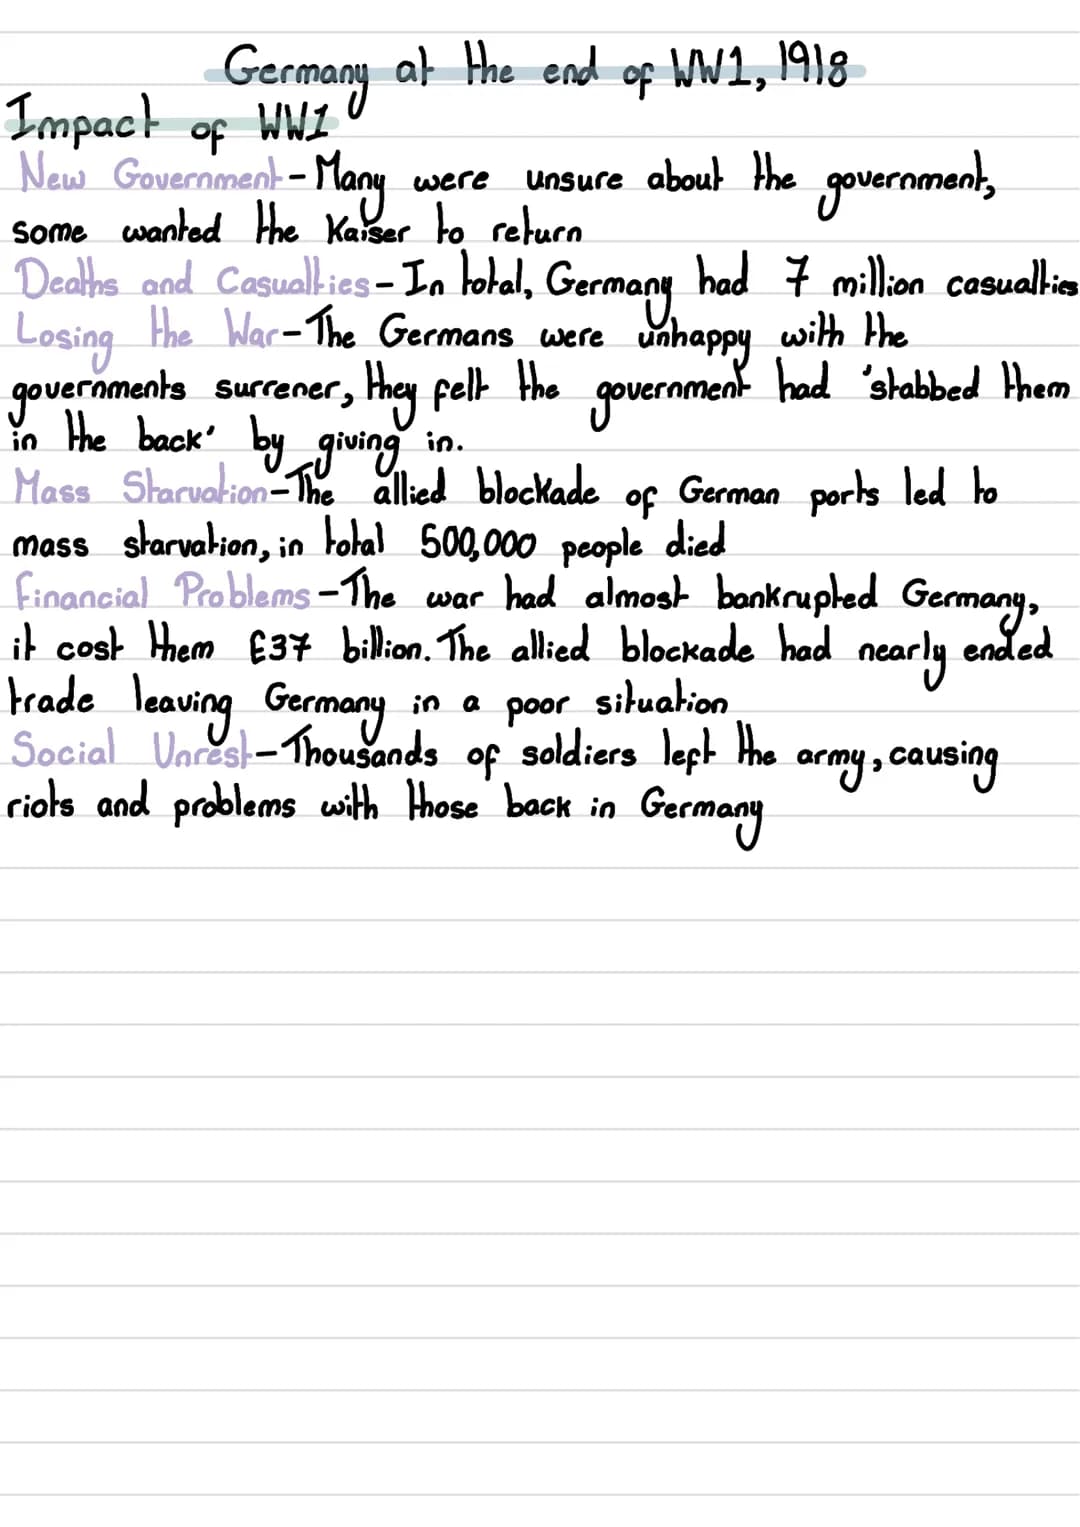 Germany at the end of WW1, 1918
Impact of WW1
New Government - Many were unsure about the government,
some wanted the Kaiser to return
Deaths and Casualties - In total, Germany had 7 million casualties
Losing the War - The Germans were unhappy with the
governments surrener, they felt the government had 'stabbed them
in the back' by giving in.
Mass Starvation - The allied blockade of German ports led to
mass starvation, in total 500,000 people died
Financial Problems - The war had almost bankrupted Germany,
it cost them £37 billion. The allied blockade had nearly ended
trade leaving Germany in a poor situation
Social Unrest - Thousands of soldiers left the army, causing
riots and problems with those back in Germany